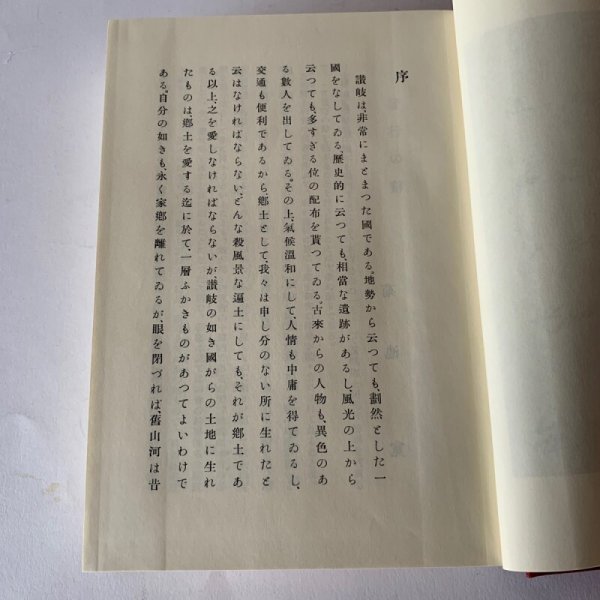 序
讃岐は、非常にまとまつた國である。地勢から云つても、劃然とした一
國をなしてゐる。歴史的に云つても、相當な遺跡があるし、風光の上から
云つても、多すぎる位の配布を貰つてゐる。古來からの人物も、異色のあ
る數人を出してゐる。その上、氣候溫和にして、人情も中庸を得てゐるし、
交通も便利であるから、鄕土として、我々は申し分のない所に生れたと
云はなければならない。どんな殺風景な逼土にしても、それが鄕土であ
る以上、之を愛しなければならないが、讃岐の如き國がらの土地に生れ
たものは、鄕土を愛する迄に於て、一層ふかきものがあつてよいわけで
ある。自分の如きも、永く家鄕を離れてゐるが、眼を閉づれば、舊山河は昔